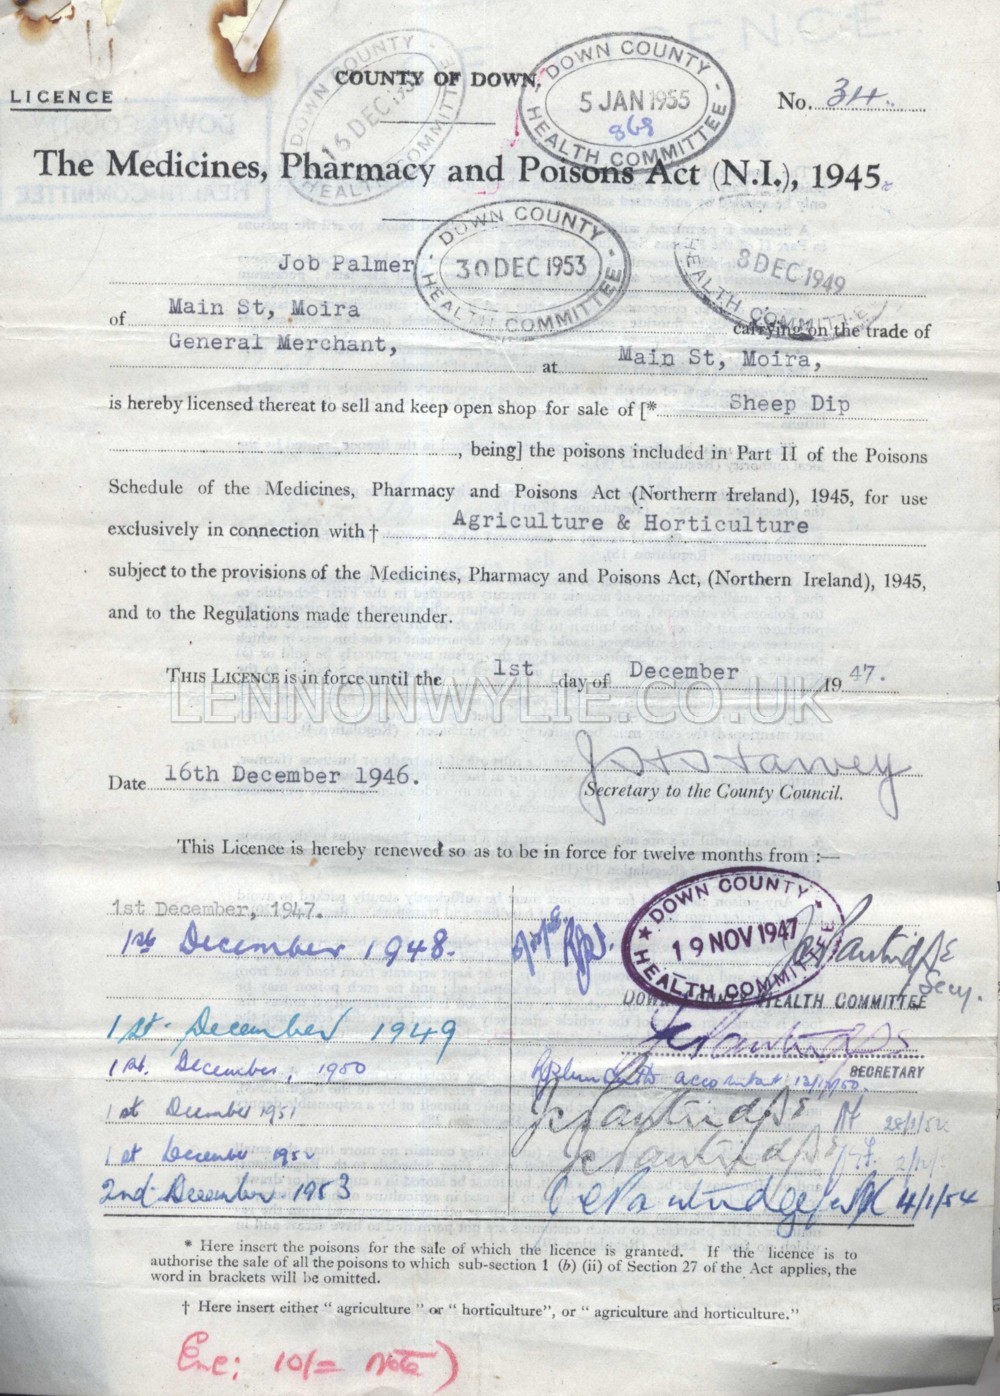 LICENCE
COUNTY OF DOWN.
No. 34.
DOWN COUNTY
15 DEC 195
HEALTH COMMITTEE
DOWN COUNTY
5 JAN 1955
868
HEALTH COMMITTEE
The Medicines, Pharmacy and Poisons Act (N.I.), 1945.
DOWN COUNTY
30 DEC 1953
HEALTH COMMITTEE
8 DEC 1949
HEALTH COMMITTEE
Job Palmer
of Main St, Moira carrying on the trade of
General Merchant, at Main St, Moira,
is hereby licensed thereat to sell and keep open shop for sale of [* Sheep Dip
, being] the poisons included in Part II of the Poisons
Schedule of the Medicines, Pharmacy and Poisons Act (Northern Ireland), 1945, for use
exclusively in connection with † Agriculture & Horticulture
subject to the provisions of the Medicines, Pharmacy and Poisons Act, (Northern Ireland), 1945,
and to the Regulations made thereunder.
THIS LICENCE is in force until the 1st day of December 19 47.
LENNONWYLIE.CO.UK
Date 16th December 1946.
Secretary to the County Council.
This Licence is hereby renewed so as to be in force for twelve months from :—
1st December, 1947.
DOWN COUNTY
19 NOV 1947
HEALTH COMMITTEE
Secy.
1st December 1948.
DOWN COUNTY HEALTH COMMITTEE
1st December 1949
SECRETARY
1st. December, 1950
accountant 12/1/50.
1st December 1951
1st December 1952
2nd December 1953
4/1/54
* Here insert the poisons for the sale of which the licence is granted. If the licence is to
authorise the sale of all the poisons to which sub-section 1 (b) (ii) of Section 27 of the Act applies, the
word in brackets will be omitted.
† Here insert either “ agriculture ” or “ horticulture”, or “ agriculture and horticulture.”
Enc: 10/= Note)